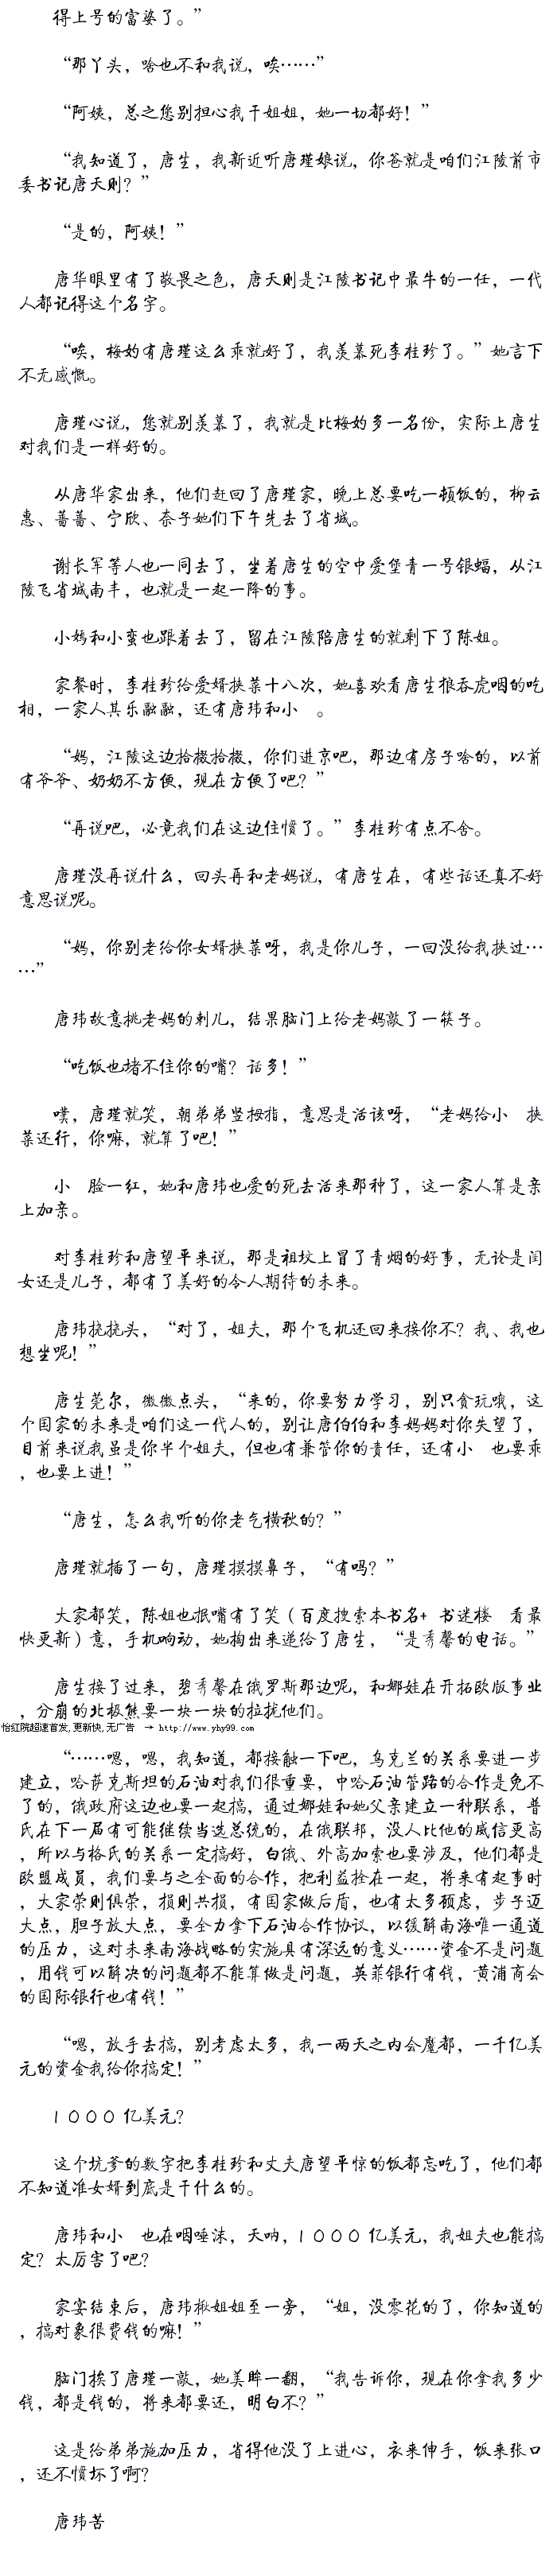 得上号的富婆了。”
“那丫头，啥也不和我说，唉……”
“阿姨，总之您别担心我干姐姐，她一切都好！”
“我知道了，唐生，我新近听唐瑾娘说，你爸就是咱们江陵前市
委书记唐天则？”
“是的，阿姨！”
唐华眼里有了敬畏之色，唐天则是江陵书记中最牛的一任，一代
人都记得这个名字。
“唉，梅妁有唐瑾这么乖就好了，我羡慕死李桂珍了。”她言下
不无感慨。
唐瑾心说，您就别羡慕了，我就是比梅妁多一名份，实际上唐生
对我们是一样好的。
从唐华家出来，他们赶回了唐瑾家，晚上总要吃一顿饭的，柳云
惠、蔷蔷、宁欣、奈子她们下午先去了省城。
谢长军等人也一同去了，坐着唐生的空中爱堡青一号银蝠，从江
陵飞省城南丰，也就是一起一降的事。
小嫣和小蛮也跟着去了，留在江陵陪唐生的就剩下了陈姐。
家餐时，李桂珍给爱婿挟菜十八次，她喜欢看唐生狼吞虎咽的吃
相，一家人其乐融融，还有唐玮和小　。
“妈，江陵这边拾掇拾掇，你们进京吧，那边有房子啥的，以前
有爷爷、奶奶不方便，现在方便了吧？”
“再说吧，必竟我们在这边住惯了。”李桂珍有点不舍。
唐瑾没再说什么，回头再和老妈说，有唐生在，有些话还真不好
意思说呢。
“妈，你别老给你女婿挟菜呀，我是你儿子，一回没给我挟过…
…”
唐玮故意挑老妈的刺儿，结果脑门上给老妈敲了一筷子。
“吃饭也堵不住你的嘴？话多！”
噗，唐瑾就笑，朝弟弟竖拇指，意思是活该呀，“老妈给小　挟
菜还行，你嘛，就算了吧！”
小　脸一红，她和唐玮也爱的死去活来那种了，这一家人算是亲
上加亲。
对李桂珍和唐望平来说，那是祖坟上冒了青烟的好事，无论是闰
女还是儿子，都有了美好的令人期待的未来。
唐玮挠挠头，“对了，姐夫，那个飞机还回来接你不？我、我也
想坐呢！”
唐生莞尔，微微点头，“来的，你要努力学习，别只贪玩哦，这
个国家的未来是咱们这一代人的，别让唐伯伯和李妈妈对你失望了，
目前来说我虽是你半个姐夫，但也有兼管你的责任，还有小　也要乖
，也要上进！”
“唐生，怎么我听的你老气横秋的？”
唐瑾就插了一句，唐瑾摸摸鼻子，“有吗？”
大家都笑，陈姐也抿嘴有了笑（百度搜索本书名+ 书迷楼　看最
快更新）意，手机响动，她掏出来递给了唐生，“是秀馨的电话。”
唐生接了过来，碧秀馨在俄罗斯那边呢，和娜娃在开拓欧版事业
，分崩的北极熊要一块一块的拉拢他们。
怡红院超速首发,更新快,无广告　→ http://www.yhy99.com
“……嗯，嗯，我知道，都接触一下吧，乌克兰的关系要进一步
建立，哈萨克斯坦的石油对我们很重要，中哈石油管路的合作是免不
了的，俄政府这边也要一起搞，通过娜娃和她父亲建立一种联系，普
氏在下一届有可能继续当选总统的，在俄联邦，没人比他的威信更高
，所以与格氏的关系一定搞好，白俄、外高加索也要涉及，他们都是
欧盟成员，我们要与之全面的合作，把利益拴在一起，将来有起事时
，大家荣则俱荣，损则共损，有国家做后盾，也有太多顾虑，步子迈
大点，胆子放大点，要全力拿下石油合作协议，以缓解南海唯一通道
的压力，这对未来南海战略的实施具有深远的意义……资金不是问题
，用钱可以解决的问题都不能算做是问题，英菲银行有钱，黄浦商会
的国际银行也有钱！”
“嗯，放手去搞，别考虑太多，我一两天之内会魔都，一千亿美
元的资金我给你搞定！”
1000 亿美元？
这个坑爹的数字把李桂珍和丈夫唐望平惊的饭都忘吃了，他们都
不知道准女婿到底是干什么的。
唐玮和小　也在咽唾沫，天呐，1000 亿美元，我姐夫也能搞
定？太厉害了吧？
家宴结束后，唐玮揪姐姐至一旁，“姐，没零花的了，你知道的
，搞对象很费钱的嘛！”
脑门挨了唐瑾一敲，她美眸一翻，“我告诉你，现在你拿我多少
钱，都是钱的，将来都要还，明白不？”
这是给弟弟施加压力，省得他没了上进心，衣来伸手，饭来张口
，还不惯坏了啊？
唐玮苦